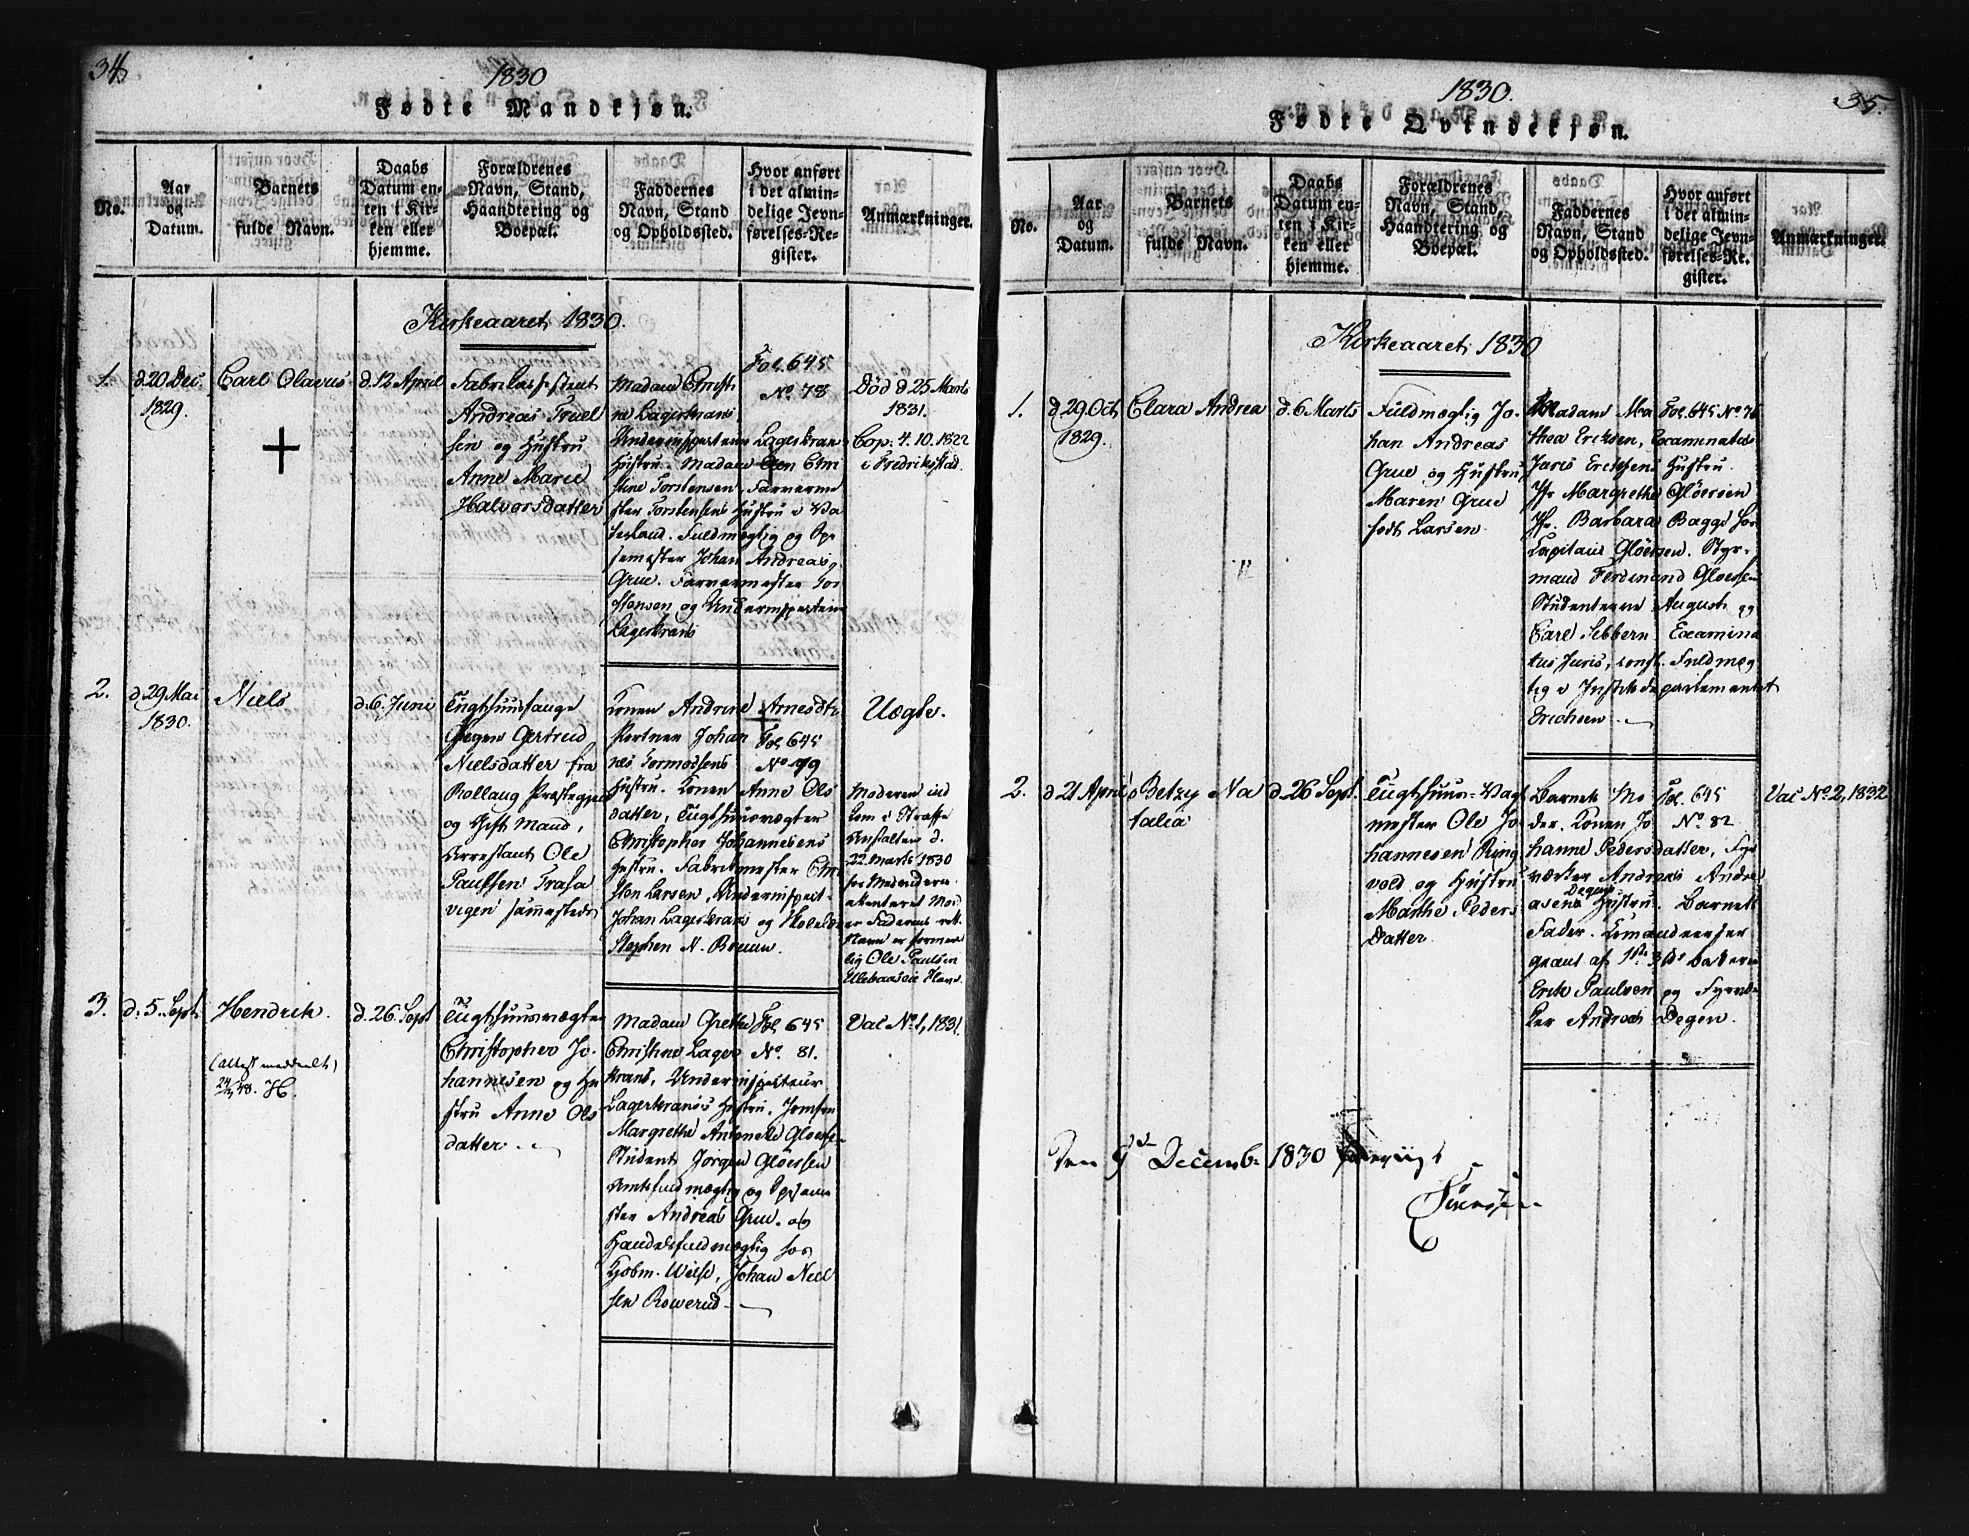 34
1830
Fødte Mandkjøn.
No.
Aar
og
Datum.
Barnets
fulde Navn.
Daabs
Datum en-
ten i Kir-
ken eller
hjemme.
Forældrenes
Navn, Stand,
Haandtering og
Boepæl.
Faddernes
Navn, Stand
og Opholdssted.
Hvor anført
i det almin-
delige Jevn-
førelses-Re-
gister.
Anmærkninger.
Kirkeaaret 1830.
1.
d. 20 Dec.
1829.
Carl Olavus
d. 12 April
Fabrikassistent
Andreas Truel
sen og Hustru
Anne Marie
Halvorsdatter
Madam Christi
ne Lagerkrans
Underinspecteur Lagerkran
Hustru. Madam Chri
stine Torstensen Farverme
ster Torstensens Hustru i Va
terland. Fuldmægtig og Op
semester Johan Andreas
Grue. Farvermester Tor
stensen og Underinspecteur
Lagerkrans
Fol. 645
No. 78
Død d 25 Marts
1831.
Cop. 4.10.1822
i Fredrikstad.
2.
d. 29 Mai
1830.
Niels
d. 6. Juni
Tugthuusfange
Pigen Gertrud
Nielsdatter fra
Rollaug Præstegjeld
og Gift Mand,
Arrestant Ole
Paulsen Trafa
vigen sammesteds
Konen Andrine Arnesdtr.
Portner Johan
nes Tormodsens
Hustru. Konen Anne Ols
datter, Tugthuusvægter
Christopher Johannesens
Hustru. Fabrikmester Chri
sten Larsen, Underinspect.
Johan Lagerkrans og
Stephen N.
Fol. 645
No. 79
Uægte.
Moderen ind
kom i Straffe
Anstalten d.
22 Marts 1830
er Faderens rett.
Navn er formen
lig Ole Paulsen
3.
d. 5. Septr
Hendrik.
(attest meddeelt)
24/4 48. H.
d. 26. Sept
Tugthuusvægter
Christopher Jo-
hannesen og Hu
stru Anne Ols
datter.
Madam Grethe
Christine Lager
krans, Underinspecteur
Lagerkrans's Hustru. Jomfru
Margrethe Antonette Gloersen
Student Jørgen Gløersen
Amtsfuldmægtig og Opseme
ster Andreas Grue. og
Handelsfuldmægtig hos
Kjøbm. Wilse, Johan Niel
sen Rowerud.
Fol. 645
No. 81.
Vac No. 1, 1831.
35.
1830.
Fødte Qvindekjøn.
No.
Aar
og
Datum.
Barnets
fulde Navn.
Daabs
Datum en-
ten i Kir-
ken eller
hjemme.
Forældrenes
Navn, Stand,
Haandtering og
Boepæl.
Faddernes
Navn, Stand
og Opholdssted.
Hvor anført
i det almin-
delige Jevn-
førelses-Re-
gister.
Anmærkninger.
Kirkeaaret 1830
1.
d. 29 Oct
1829.
Clara Andrea
d. 6 Marts
Fuldmægtig Jo-
han Andreas
Grue og Hustru
Maren Grue
født Larsen
Madam Ma
thea Ericksen, Examinatus
Juris Ericksens Hustru.
Jfr Margrethe Gløersen
Jfr. Barbara Bagge hos
Capitain Gløersen. Styr-
mand Ferdinand Gloersen
Studenterne August og
Carl Sibbern. Examina
tus Juris, const. Fuldmæg
tig i Justitsdepartementet
Ericksen.
Fol. 645 No. 76
2.
d. 21 April
Betzy Na
talia
d. 26 Sept.
Tugthuus-Vagt
mester Ole Jo
hannesen Ring
vold og Hustru
Marthe Peders
datter.
Barnets Mo
der. Konen Jo
hanne Pedersdatter, Fyr
værker Andreas Andre
asens Degens Hustru. Barnets
Fader. Comandeersier
geant af
Erik Paulsen og Fyrvær
ker Andreas Degen.
Fol. 645
No. 82
Vac No. 2, 1832
Den 9de Decembr 1830